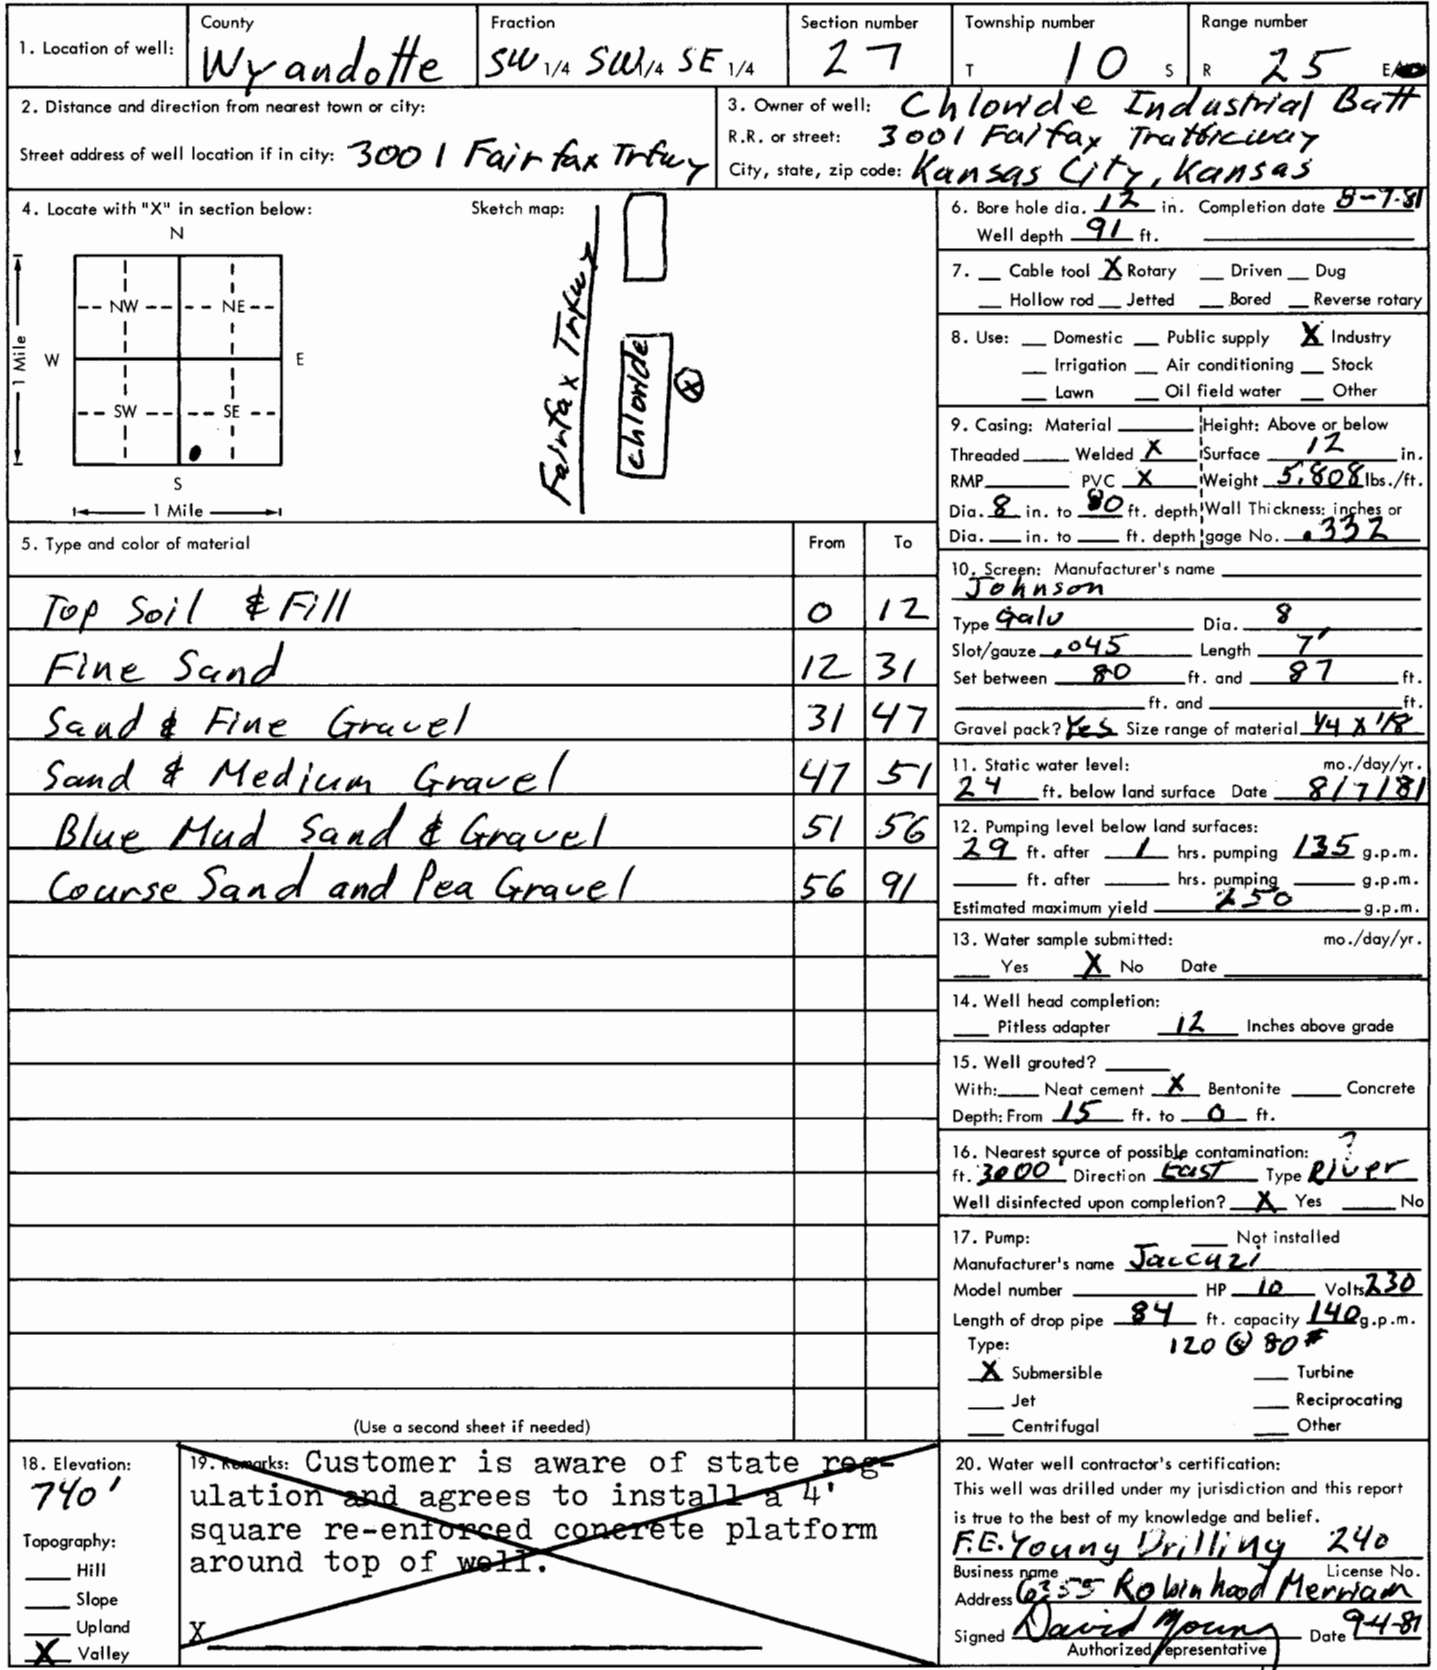 1. Location of well: County Wyandotte Fraction SW 1/4 SW 1/4 SE 1/4 Section number 27 Township number T 10 S Range number R 25 E
2. Distance and direction from nearest town or city:
Street address of well location if in city: 3001 Fairfax Trfwy
3. Owner of well: Chloride Industrial Batt
R.R. or street: 3001 Faifax Trafficway
City, state, zip code: Kansas City, Kansas
4. Locate with "X" in section below:
N
NW NE
W E
SW SE
S
1 Mile
1 Mile
Sketch map:
Fairfax Trfwy
Chloride
X
5. Type and color of material From To
Top Soil & Fill 0 12
Fine Sand 12 31
Sand & Fine Gravel 31 47
Sand & Medium Gravel 47 51
Blue Mud Sand & Gravel 51 56
Course Sand and Pea Gravel 56 91
(Use a second sheet if needed)
6. Bore hole dia. 12 in. Completion date 8-7-81
Well depth 91 ft.
7. Cable tool X Rotary Driven Dug
Hollow rod Jetted Bored Reverse rotary
8. Use: Domestic Public supply X Industry
Irrigation Air conditioning Stock
Lawn Oil field water Other
9. Casing: Material Height: Above or below
Threaded Welded X Surface 12 in.
RMP PVC X Weight 5.808 lbs./ft.
Dia. 8 in. to 80 ft. depth Wall Thickness: inches or
Dia. in. to ft. depth gage No. .332
10. Screen: Manufacturer's name
Johnson
Type Galv Dia. 8
Slot/gauze .045 Length 7'
Set between 80 ft. and 87 ft.
ft. and ft.
Gravel pack? Yes Size range of material 1/4 X 1/8
11. Static water level: mo./day/yr.
24 ft. below land surface Date 8/7/81
12. Pumping level below land surfaces:
29 ft. after 1 hrs. pumping 135 g.p.m.
ft. after hrs. pumping g.p.m.
Estimated maximum yield 250 g.p.m.
13. Water sample submitted: mo./day/yr.
Yes X No Date
14. Well head completion:
Pitless adapter 12 Inches above grade
15. Well grouted?
With: Neat cement X Bentonite Concrete
Depth: From 15 ft. to 0 ft.
16. Nearest source of possible contamination: ?
ft. 3000' Direction East Type River
Well disinfected upon completion? X Yes No
17. Pump: Not installed
Manufacturer's name Jaccuzi
Model number HP 10 Volts 230
Length of drop pipe 84 ft. capacity 140 g.p.m.
Type: 120 @ 80#
X Submersible Turbine
Jet Reciprocating
Centrifugal Other
18. Elevation:
740'
Topography:
Hill
Slope
Upland
X Valley
19. Remarks: Customer is aware of state reg-
ulation and agrees to install a 4'
square re-enforced concrete platform
around top of well.
X
20. Water well contractor's certification:
This well was drilled under my jurisdiction and this report
is true to the best of my knowledge and belief.
F.E. Young Drilling 240
Business name License No.
Address 6355 Robinhood Merriam
Signed David Young Date 9-4-81
Authorized representative